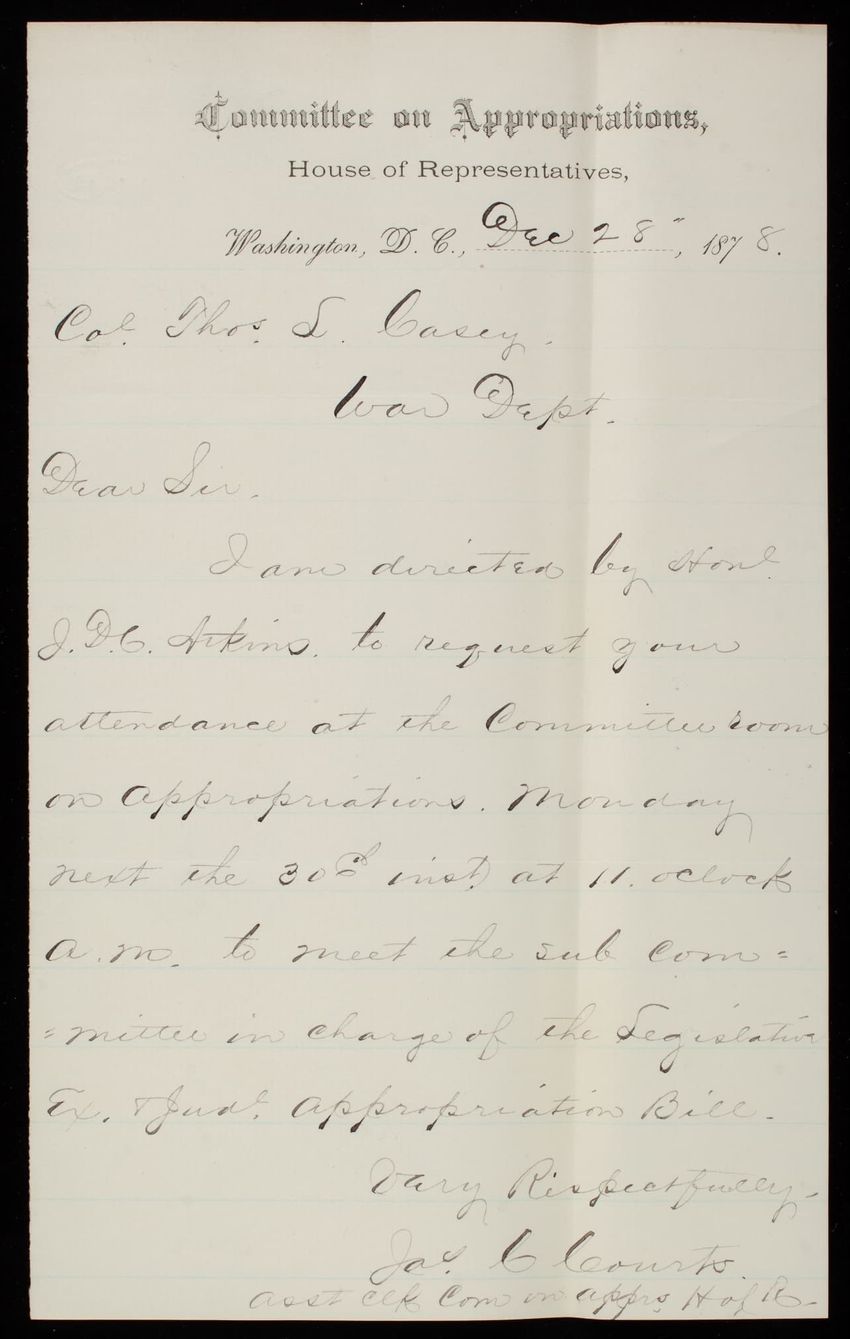 Committee on Appropriations,
House of Representatives,
Washington, D. C., Dec 28", 1878.
Col. Thos. L. Casey.
War Dept.
Dear Sir.
I am directed by Honl.
J. D. C. Atkins. to request your
attendance at the Committee room
on Appropriations. Monday
next the 30th inst) at 11. oclock
a.m. to meet the sub com=
=mittee in charge of the Legislative
Ex. & Judl. Appropriation Bill.
Very Respectfully.
Jas. C Courts.
asst clk Com on apprs H of R.